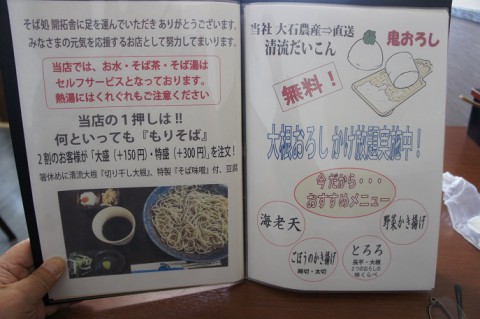 そば処 開拓舎に足を運んでいただき ありがとうございます。
みなさまの元気を応援するお店として努力してまいります。
当店では、お水・そば茶・そば湯は
セルフサービスとなっております。
熱湯にはくれぐれもご注意ください
当店の1押しは!!
何といっても『もりそば』
2割のお客様が「大盛(+150円)・特盛(+300円)」を注文!
箸休めに清流大根『切り干し大根』、特製『そば味噌』付、豆腐
当社 大石農産⇒直送
清流だいこん
鬼おろし
無料!
大根おろし かけ放題実施中!
今だから・・・
おすすめメニュー
海老天
野菜かき揚げ
ごぼうのかき揚げ
細切・太切
とろろ
長芋・大根
2つのおろしの